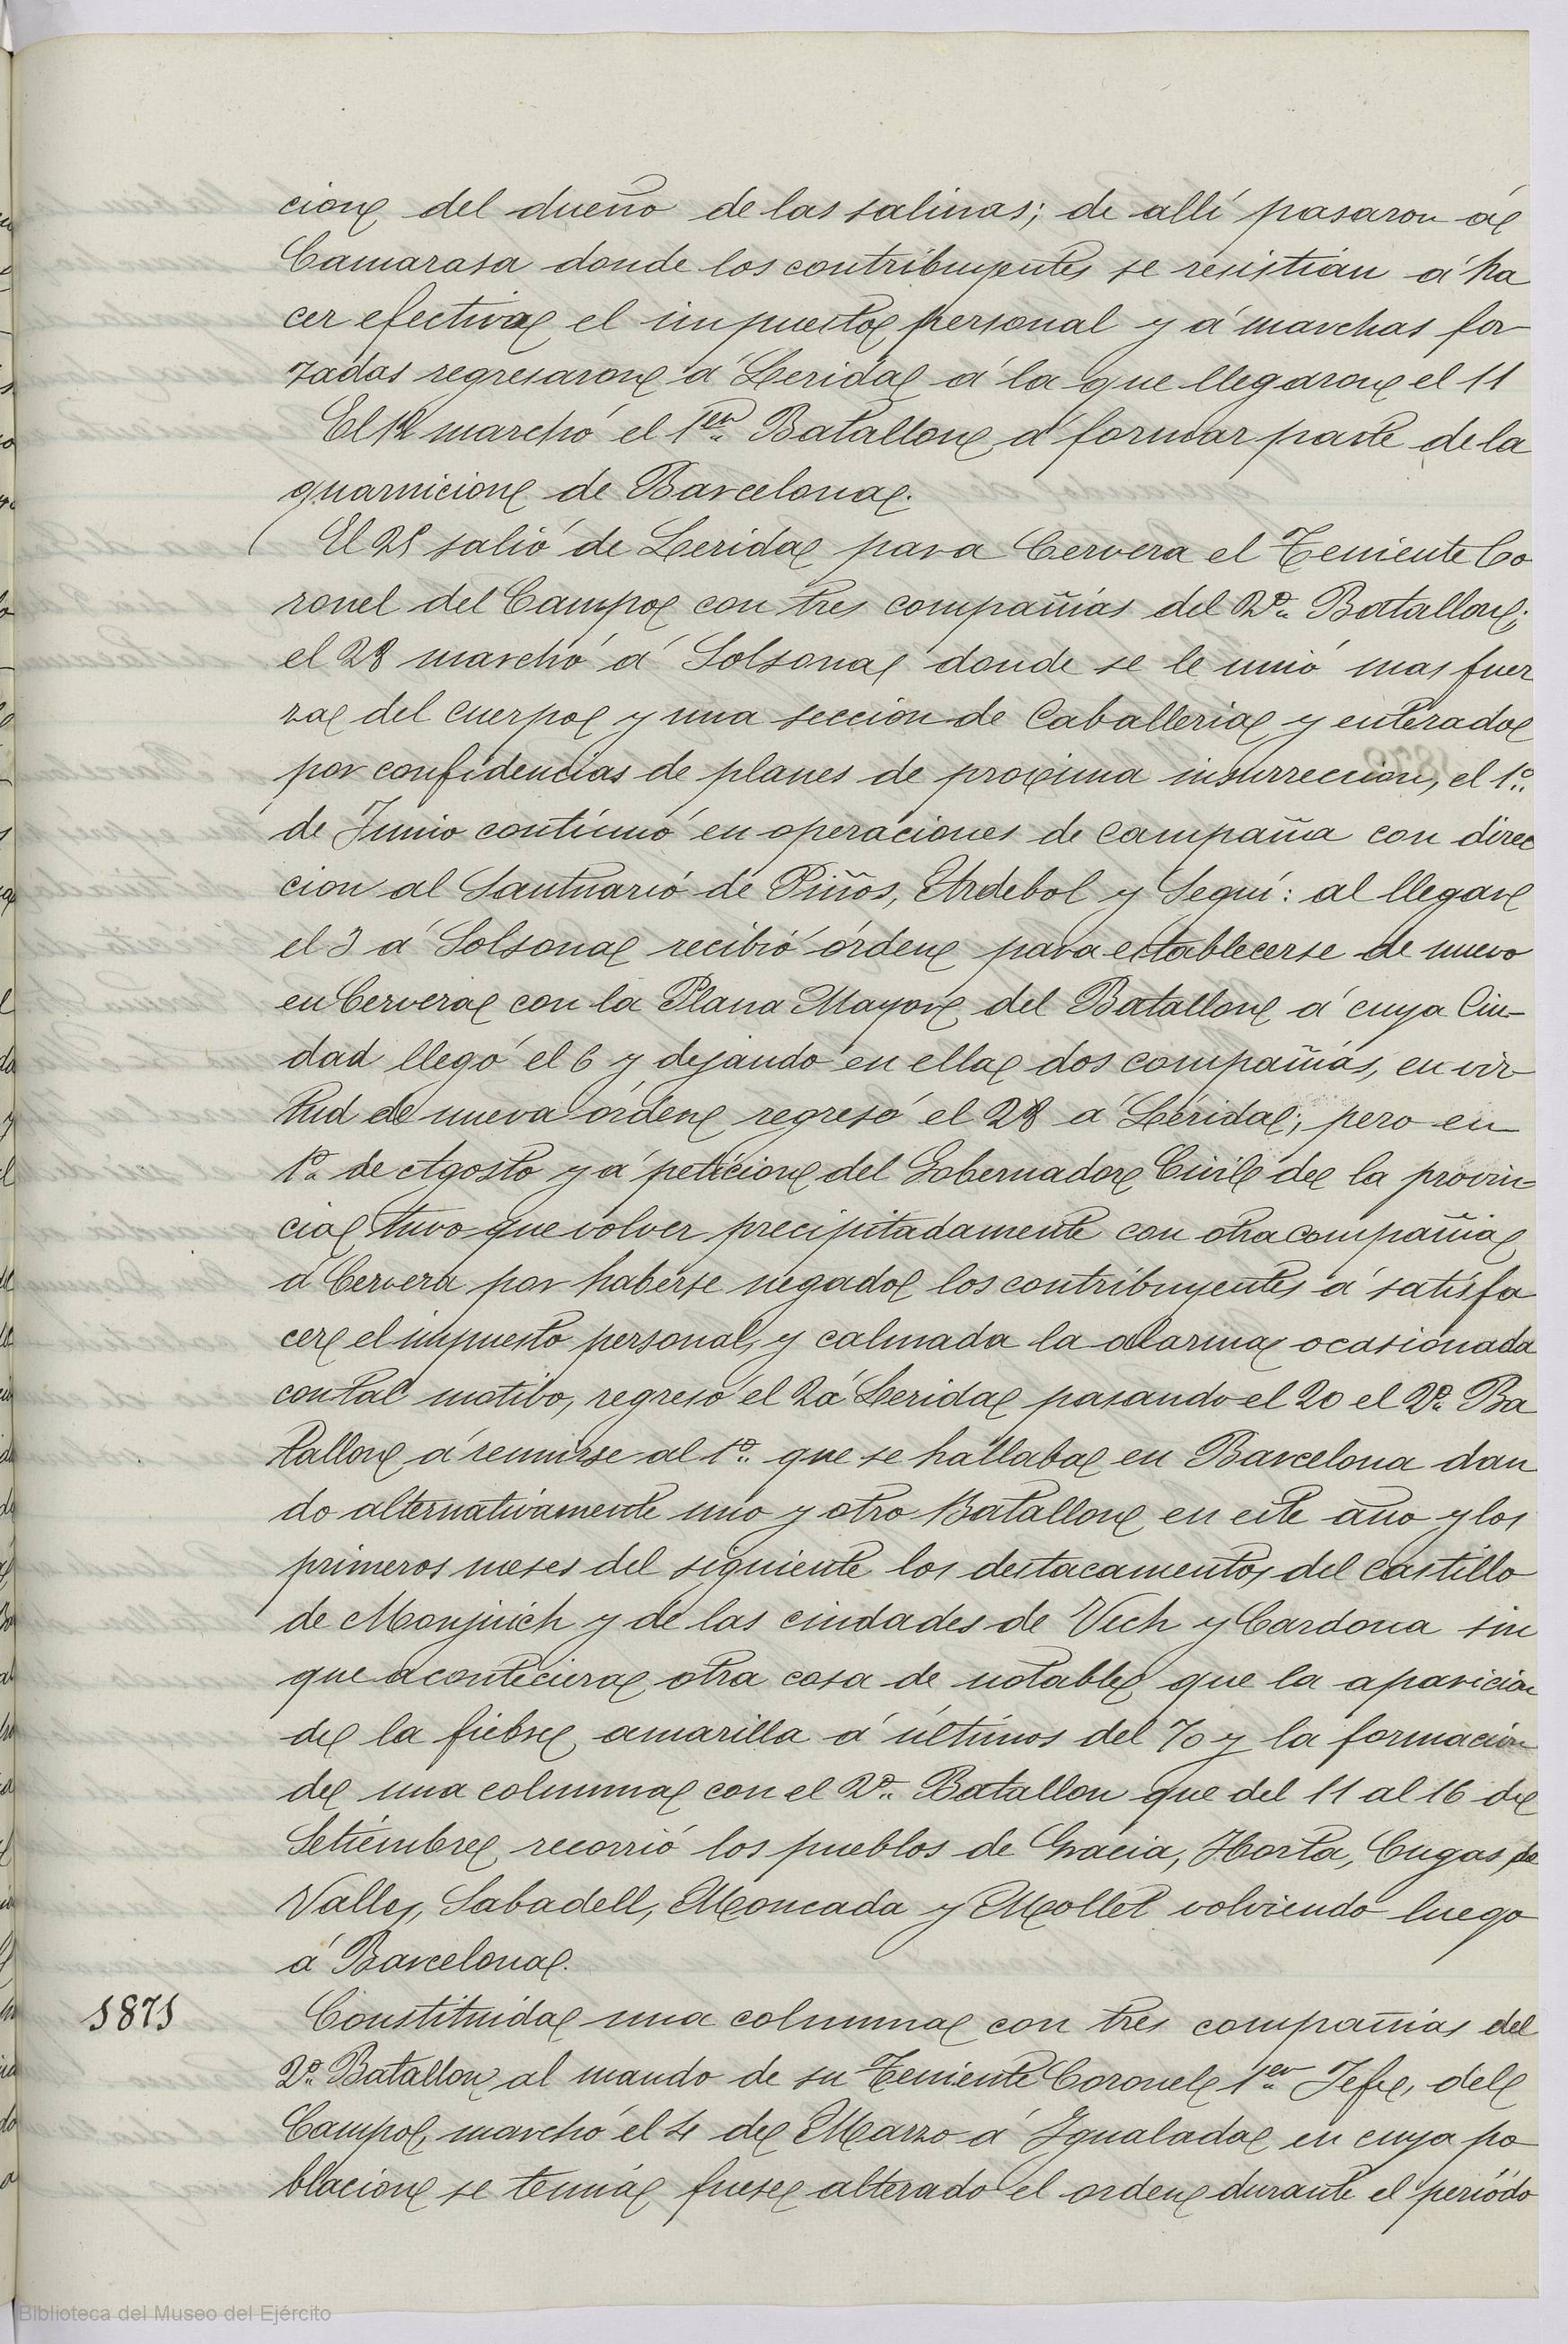 cion del dueño de las salinas; de allí pasaron á
Camarasa donde los contribuyentes se resistian á ha
cer efectiva el impuesto personal y á marchas for
zadas regresaron á Lerida á la que llegaron el 11
El 12 marchó el 1er. Batallon á formar parte de la
guarnicion de Barcelona.
El 25 salió de Lerida para Cervera el Teniente Co
ronel del Campo con tres compañias del 2º. Batallon;
el 28 marchó á Solsona donde se le unió mas fuer
za del cuerpo y una seccion de Caballeria y enterado
por confidencias de planes de proxima insurreccion, el 1º.
de Junio continuó en operaciones de campaña con direc
cion al Santuario de Piños, Ardebol y Seguí: al llegar
el 3 á Solsona recibió órden para establecerse de nuevo
en Cervera con la Plana Mayor del Batallon á cuya Ciu-
dad llegó el 6 y dejando en ella dos compañias, en vir-
tud de nueva órden regresó el 28 á Lérida; pero en
1º. de Agosto y á peticion del Gobernador Civil de la provin-
cia tuvo que volver precipitadamente con otra compañia
á Cervera por haberse negado los contribuyentes á satisfa
cer el impuesto personal, y calmada la alarma ocasionada
con tal motibo, regresó el 2 á Lerida pasando el 20 el 2º. Ba
tallon á reunirse al 1º. que se hallaba en Barcelona dan
do alternativamente uno y otro Batallon en este año y los
primeros meses del siguiente los destacamentos del castillo
de Monjuich y de las ciudades de Vich y Cardona sin
que aconteciera otra cosa de notable que la aparicion
de la fiebre amarilla á últimos del 70 y la formacion
de una columna con el 2º. Batallon que del 11 al 16 de
Setiembre recorrió los pueblos de Gracia, Horta, Cugas de
Valles, Sabadell, Moncada y Mollet volviendo luego
á Barcelona.
1871
Constituida una columna con tres compañias del
2º. Batallon al mando de su Teniente Coronel 1er. Jefe, del
Campo, marchó el 4 de Marzo á Igualada en cuya po
blacion se temia fuese alterado el orden durante el período
Biblioteca del Museo del Ejército